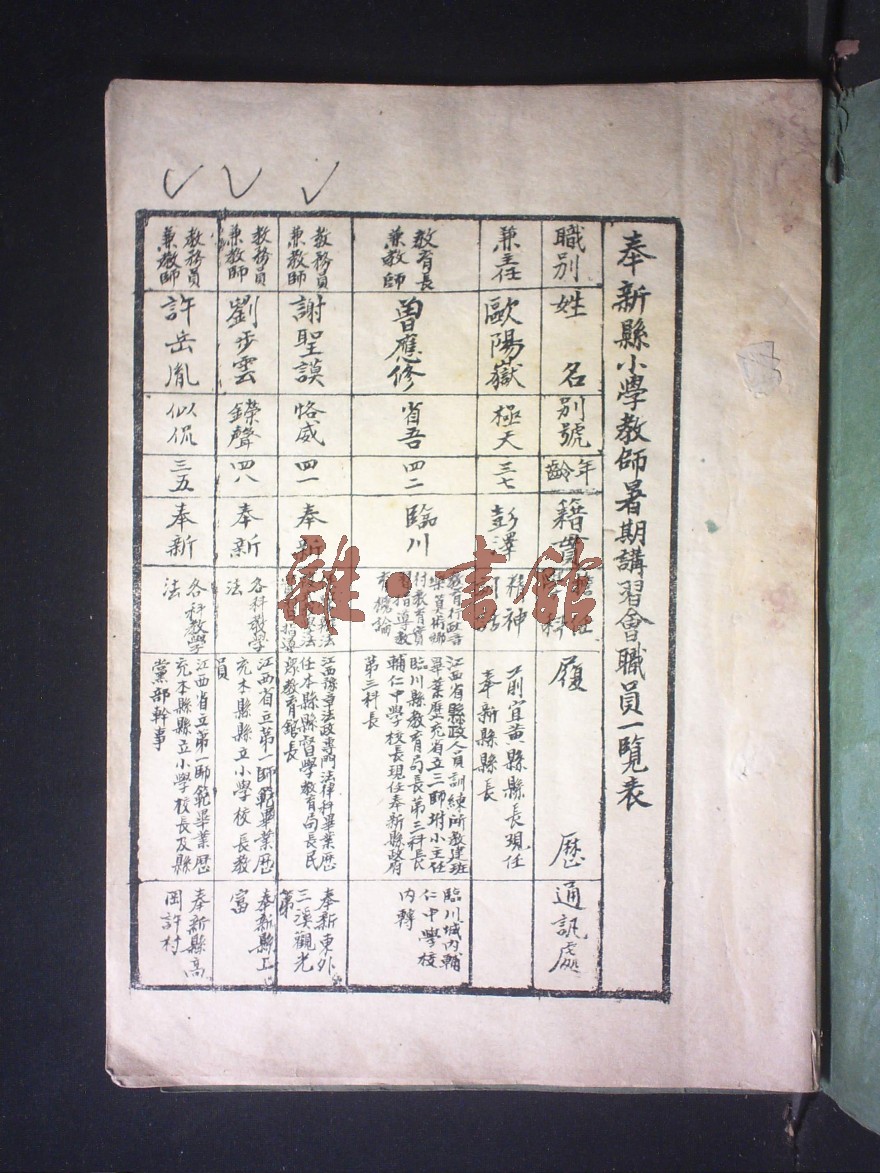 奉新縣小學教師暑期講習會職員一覽表
職別
姓名
別號
年齡
籍貫
履歷
通訊處
兼主任
歐陽嶽
極天
三七
彭澤
精神
前宜黃縣縣長現任
奉新縣縣長
教育長
兼教師
曾應修
省吾
四二
臨川
江西省縣政人員訓練所教建班
畢業歷充省立三師附小主任
臨川縣教育局長第三科長
輔仁中學校長現任奉新縣政府
第三科長
臨川城內輔
仁中學校
內轉
教務員
兼教師
謝聖謨
恪威
四一
奉新
江西豫章法政專門法律科畢業歷
任本縣縣督學教育局長民
眾教育館長
奉新東外
三溪觀光
第
教務員
兼教師
劉步雲
鑅聲
四八
奉新
各科教學
法
江西省立第一師範畢業歷
充本縣縣立小學校長教
員
奉新縣上
富
教務員
兼教師
許岳胤
似侃
三五
奉新
各科教學
法
江西省立第一師範畢業歷
充本縣縣立小學校長及縣
黨部幹事
奉新縣高
岡許村
雜·書館